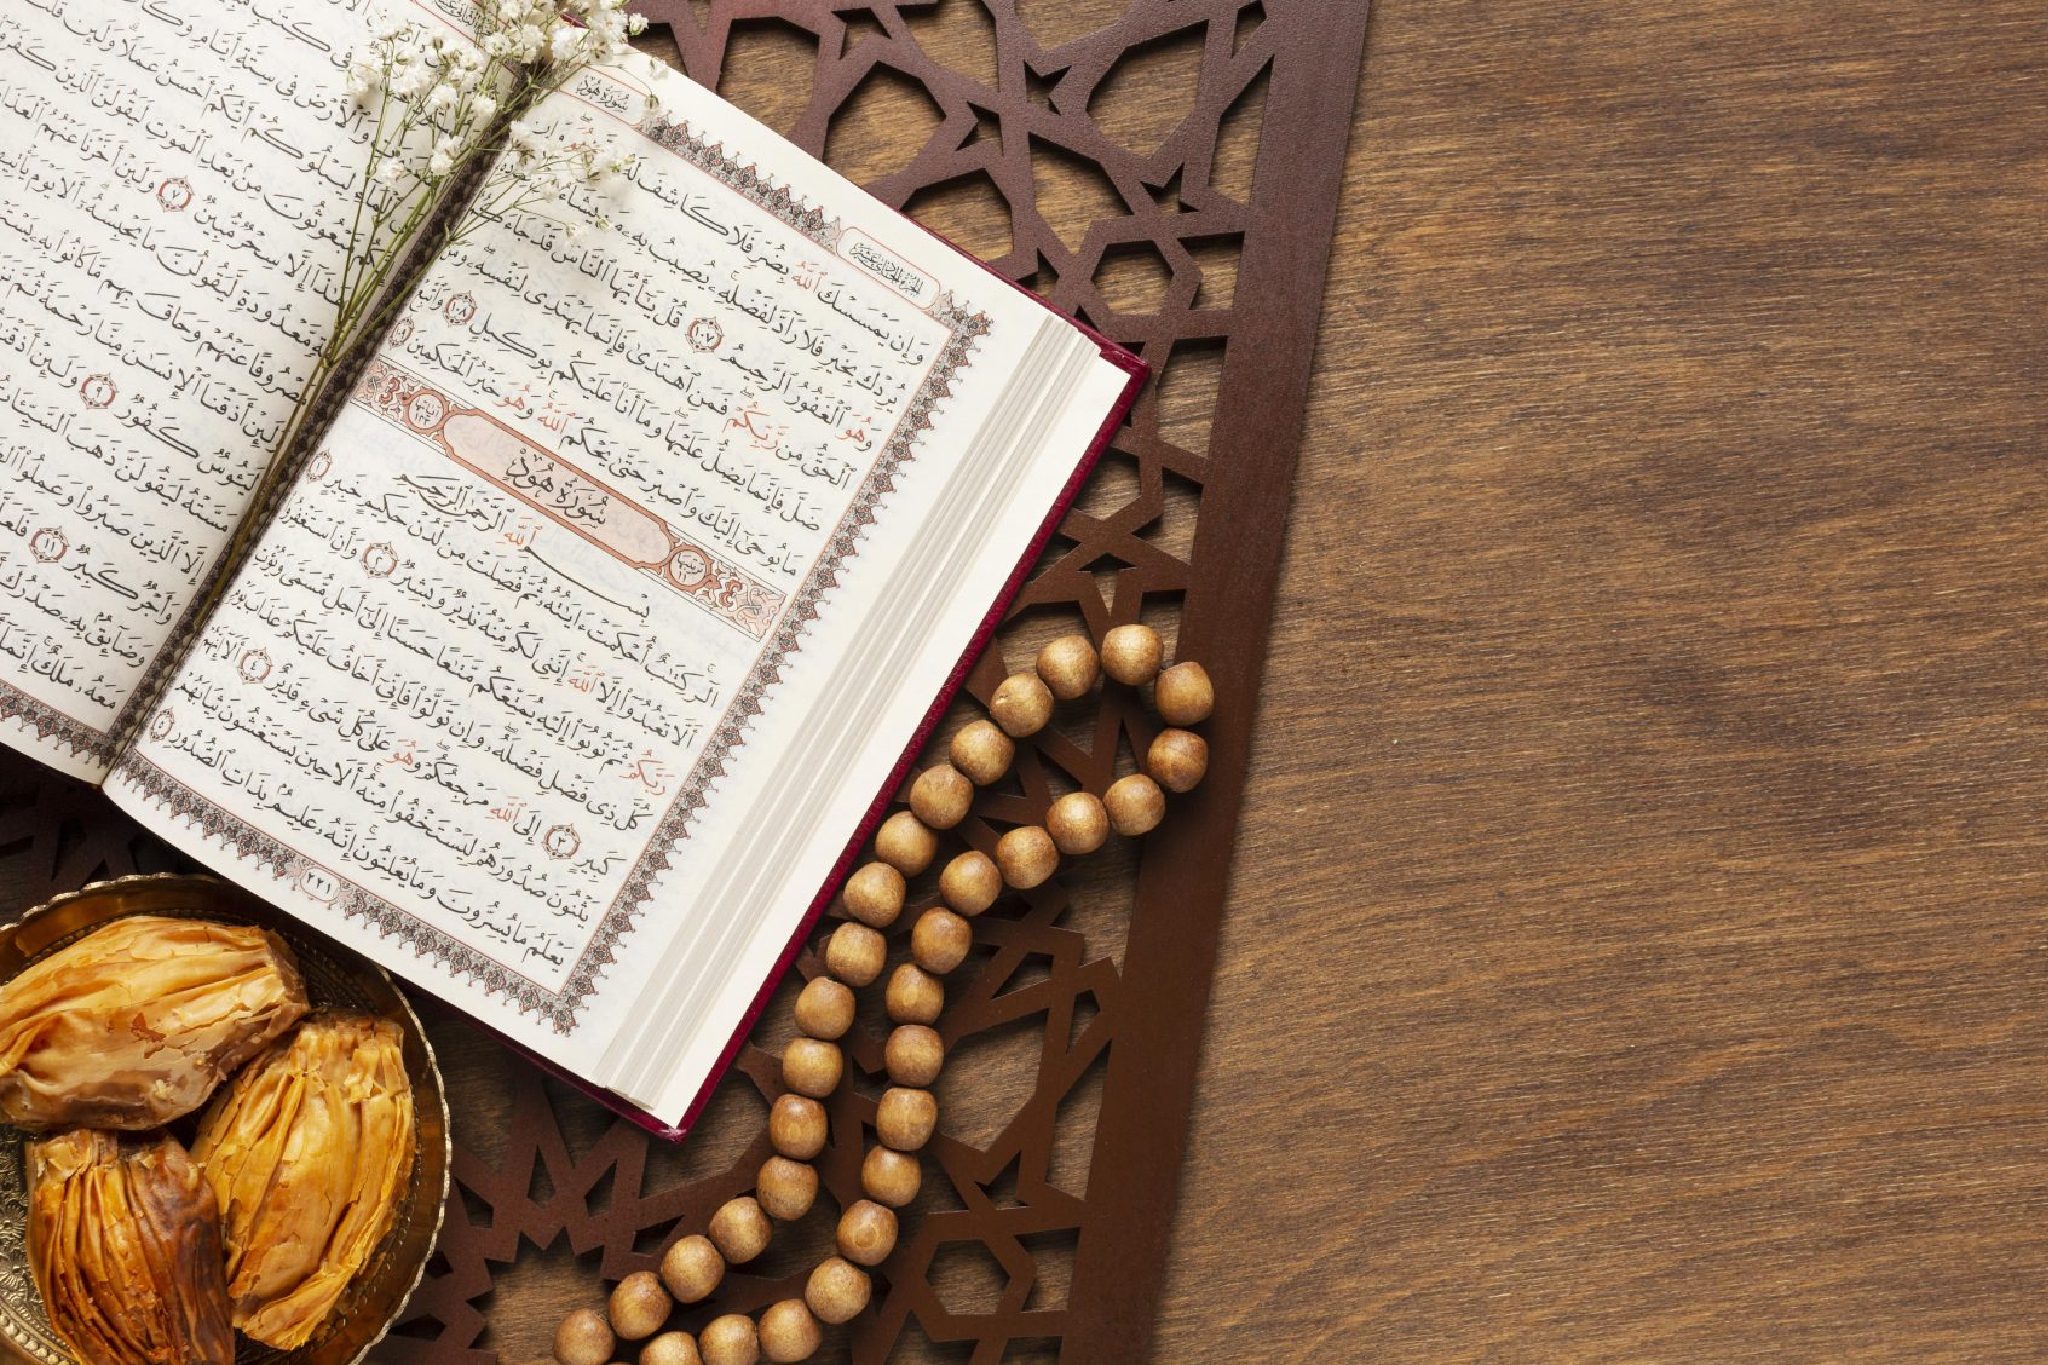 سُورَةُ هُودٍ
الجزء الحادي عشر
وَإِن يَمْسَسْكَ ٱللَّهُ بِضُرٍّ فَلَا كَاشِفَ لَهُۥٓ هُوَ وَإِن
يُرِدْكَ بِخَيْرٍ فَلَا رَآدَّ لِفَضْلِهِۦ يُصِيبُ بِهِۦ مَن يَشَآءُ
وَهُوَ ٱلْغَفُورُ ٱلرَّحِيمُ ١٠٧ قُلْ يَٰٓأَيُّهَا ٱلنَّاسُ قَدْ جَآءَكُمُ
ٱلْحَقُّ مِن رَّبِّكُمْ فَمَنِ ٱهْتَدَىٰ فَإِنَّمَا يَهْتَدِى لِنَفْسِهِۦ وَمَن
ضَلَّ فَإِنَّمَا يَضِلُّ عَلَيْهَا وَمَآ أَنَا۠ عَلَيْكُم بِوَكِيلٍ ١٠٨ وَٱتَّبِعْ
مَا يُوحَىٰٓ إِلَيْكَ وَٱصْبِرْ حَتَّىٰ يَحْكُمَ ٱللَّهُ وَهُوَ خَيْرُ ٱلْحَٰكِمِينَ ١٠٩
سُورَةُ هُودٍ
بِسْمِ ٱللَّهِ ٱلرَّحْمَٰنِ ٱلرَّحِيمِ
الٓر كِتَٰبٌ أُحْكِمَتْ ءَايَٰتُهُۥ ثُمَّ فُصِّلَتْ مِن لَّدُنْ حَكِيمٍ خَبِيرٍ ١
أَلَّا تَعْبُدُوٓا۟ إِلَّا ٱللَّهَ إِنَّنِى لَكُم مِّنْهُ نَذِيرٌ وَبَشِيرٌ ٢ وَأَنِ ٱسْتَغْفِرُوا۟
رَبَّكُمْ ثُمَّ تُوبُوٓا۟ إِلَيْهِ يُمَتِّعْكُم مَّتَٰعًا حَسَنًا إِلَىٰٓ أَجَلٍ مُّسَمًّى وَيُؤْتِ
كُلَّ ذِى فَضْلٍ فَضْلَهُۥ وَإِن تَوَلَّوْا۟ فَإِنِّىٓ أَخَافُ عَلَيْكُمْ عَذَابَ يَوْمٍ
كَبِيرٍ ٣ إِلَى ٱللَّهِ مَرْجِعُكُمْ وَهُوَ عَلَىٰ كُلِّ شَىْءٍ قَدِيرٌ ٤ أَلَآ إِنَّهُمْ
يَثْنُونَ صُدُورَهُمْ لِيَسْتَخْفُوا۟ مِنْهُ أَلَا حِينَ يَسْتَغْشُونَ ثِيَابَهُمْ
يَعْلَمُ مَا يُسِرُّونَ وَمَا يُعْلِنُونَ إِنَّهُۥ عَلِيمٌۢ بِذَاتِ ٱلصُّدُورِ ٥
٢٢١
وَٱلْأَرْضَ فِى سِتَّةِ أَيَّامٍ وَكَانَ
لِيَبْلُوَكُمْ أَيُّكُمْ أَحْسَنُ عَمَلًا وَلَئِن
مَّبْعُوثُونَ مِنۢ بَعْدِ ٱلْمَوْتِ لَيَقُولَنَّ ٱلَّذِينَ كَفَرُوٓا۟
هَٰذَآ إِلَّا سِحْرٌ مُّبِينٌ ٧ وَلَئِنْ أَخَّرْنَا عَنْهُمُ ٱلْعَذَابَ
مَّعْدُودَةٍ لَّيَقُولُنَّ مَا يَحْبِسُهُۥٓ أَلَا يَوْمَ
مَصْرُوفًا عَنْهُمْ وَحَاقَ بِهِم مَّا كَانُوا۟ بِهِۦ
وَلَئِنْ أَذَقْنَا ٱلْإِنسَٰنَ مِنَّا رَحْمَةً ثُمَّ
لَيَـُٔوسٌ كَفُورٌ ٩ وَلَئِنْ
مَسَّتْهُ لَيَقُولَنَّ ذَهَبَ ٱلسَّيِّـَٔاتُ
إِلَّا ٱلَّذِينَ صَبَرُوا۟ وَعَمِلُوا۟
وَأَجْرٌ كَبِيرٌ ١١
وَضَآئِقٌۢ بِهِۦ صَدْرُكَ
مَعَهُۥ مَلَكٌ إِنَّمَآ